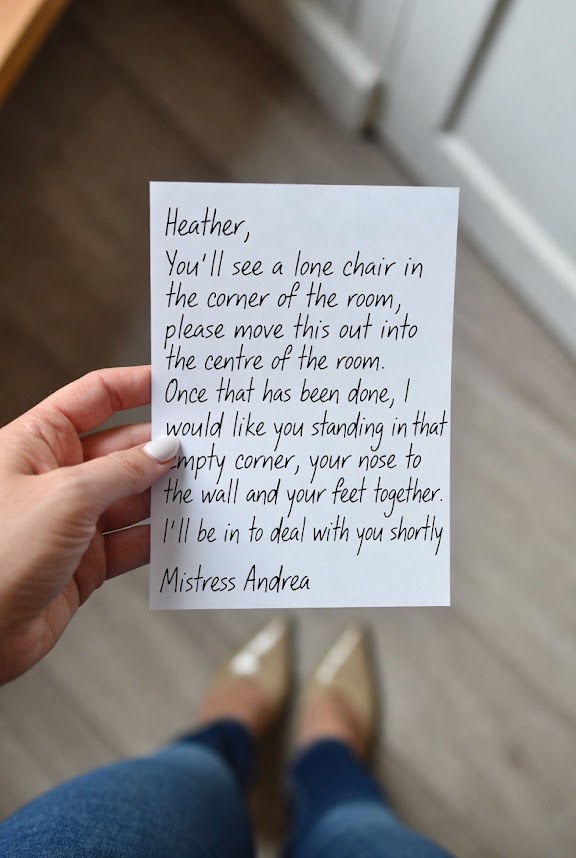 Heather,
You'll see a lone chair in
the corner of the room,
please move this out into
the centre of the room.
Once that has been done, I
would like you standing in that
empty corner, your nose to
the wall and your feet together.
I'll be in to deal with you shortly
Mistress Andrea